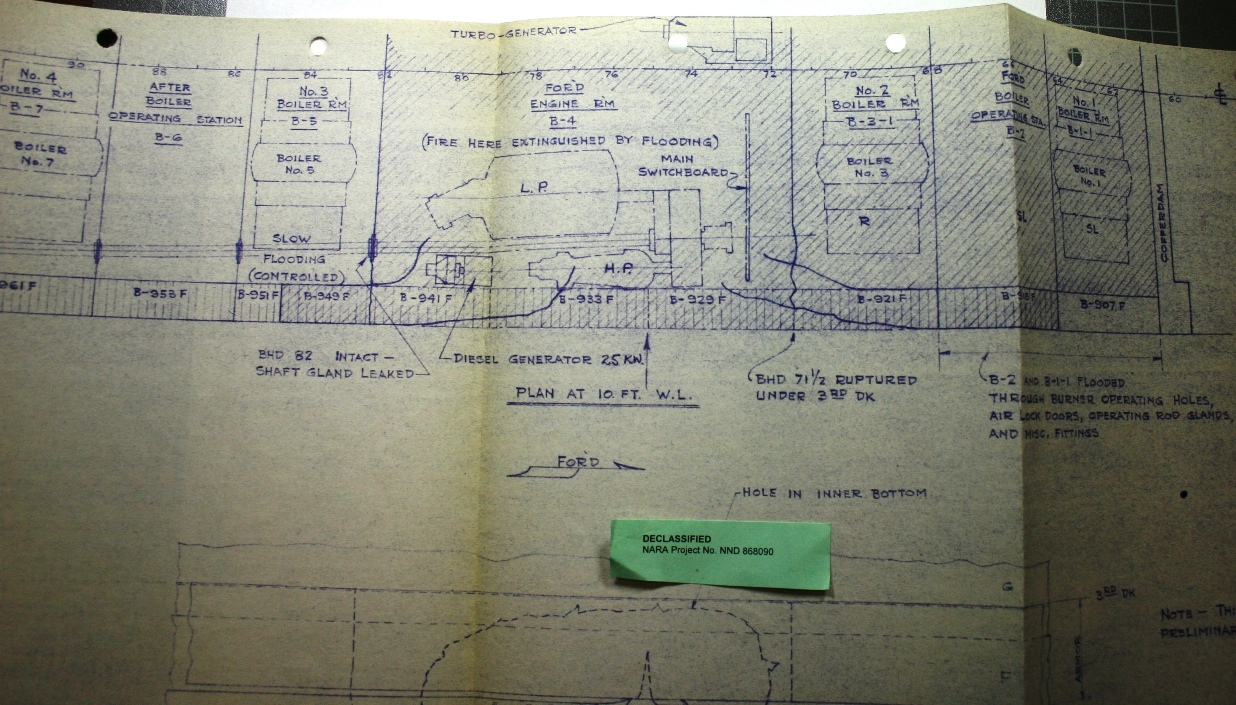 TURBO-GENERATOR
90
88
86
84
82
80
78
76
74
72
70
68
66
64
62
60
No. 4
BOILER RM
B-7
BOILER
No. 7
AFTER
BOILER
OPERATING STATION
B-6
No. 3
BOILER RM
B-5
BOILER
No. 5
SLOW
FLOODING
(CONTROLLED)
FOR'D
ENGINE RM
B-4
(FIRE HERE EXTINGUISHED BY FLOODING)
L.P.
H.P.
MAIN
SWITCHBOARD
No. 2
BOILER RM
B-3-1
BOILER
No. 3
R
FOR'D
BOILER
OPERATING STA.
B-2
SL
No. 1
BOILER RM
B-1-1
BOILER
No. 1
SL
COFFERDAM
961 F
B-953 F
B-951 F
B-949 F
B-941 F
B-933 F
B-929 F
B-921 F
B-907 F
BHD 82 INTACT –
SHAFT GLAND LEAKED
DIESEL GENERATOR 25 KW.
PLAN AT 10 FT. W.L.
BHD 71½ RUPTURED
UNDER 3RD DK
B-2 AND B-1-1 FLOODED
THROUGH BURNER OPERATING HOLES,
AIR LOCK DOORS, OPERATING ROD GLANDS,
AND MISC. FITTINGS
FOR'D
HOLE IN INNER BOTTOM
DECLASSIFIED
NARA Project No. NND 868090
G
3RD DK
F
ARMOR
NOTE – THI
PRELIMINAR